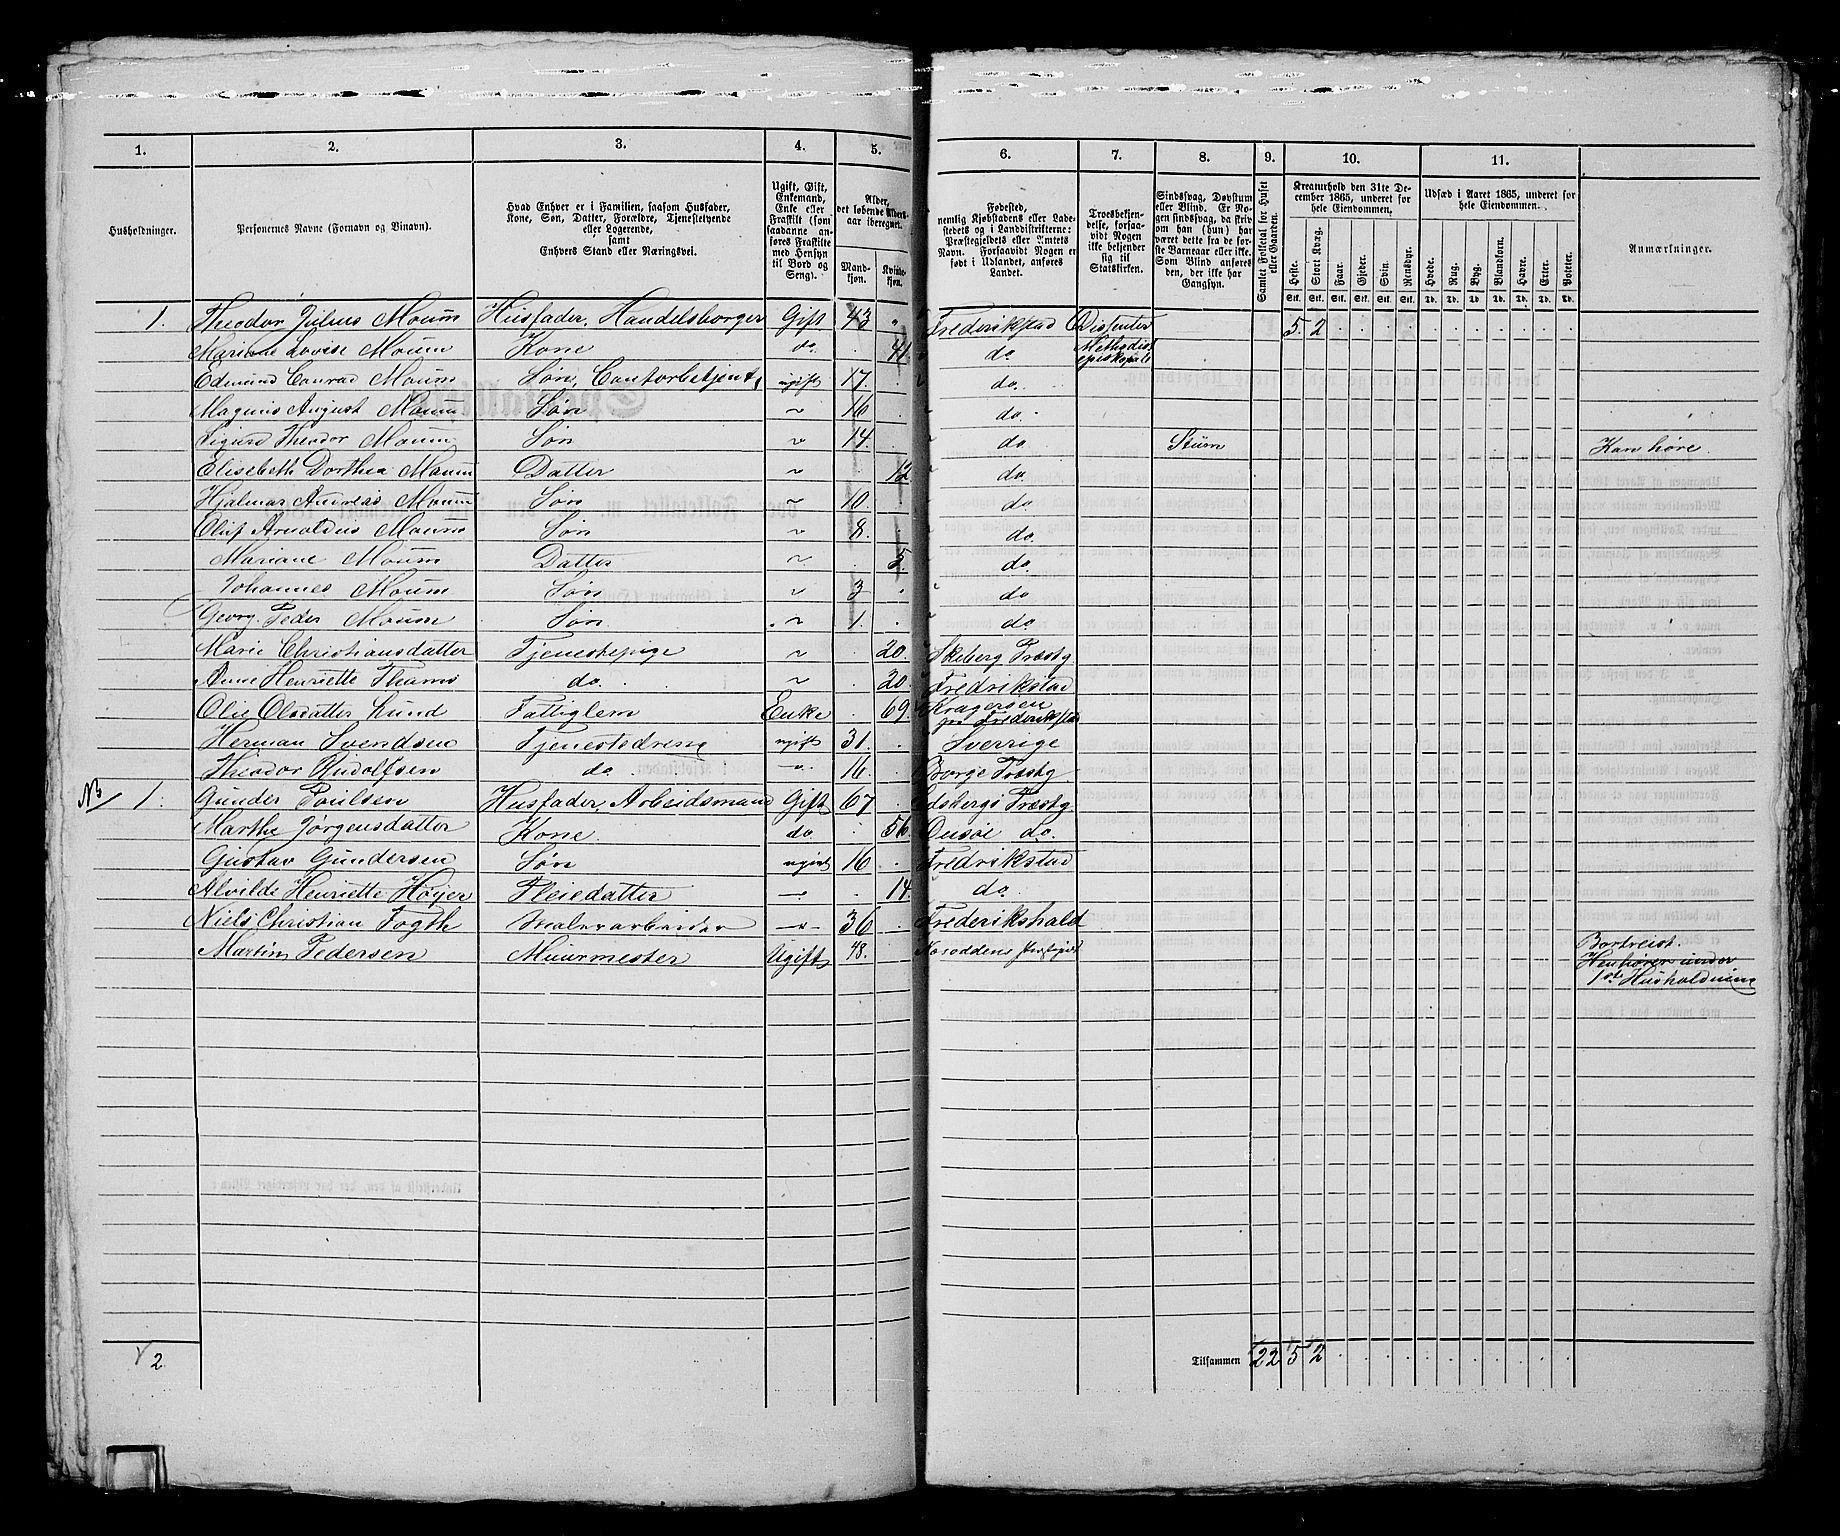 1. 2. 3. 4. 5. 6. 7. 8. 9. 10. 11.
Husholdninger.
Personernes Navne (Fornavn og Tilnavn).
Hvad Enhver er i Familien, saasom Husfader,
Kone, Søn, Datter, Forældre, Tjenestetyende
eller Logerende,
samt
Enhvers Stand eller Næringsvei.
Ugift, Gift,
Enkemand,
Enke eller
Fraskilt (som
saadanne an-
føres Fraskilte
med Hensyn
til Bord og
Seng).
Alder,
det løbende Alders-
aar iberegnet.
Mand-
kjøn.
Kvinde-
kjøn.
Fødested,
nemlig Kjøbstadens eller Lade-
stedets og i Landdistrikterne:
Præstegjeldets eller Amtets
Navn. Forsaavidt Nogen er
født i Udlandet, anføres
Landet.
Troesbekjen-
delse, forsaa-
vidt Nogen
ikke bekjender
sig til
Statskirken.
Sindssvag, Døvstum
eller Blind. Er No-
gen sindssvag, da skriv
om han (hun) har
været dette fra de før-
ste Barneaar eller ikke.
Som Blind anføres
den, der ikke har
Gangsyn.
Samlet Folketal for Huset
eller Gaarden.
Kreaturhold den 31te De-
cember 1865, underet for
hele Eiendommen.
Heste. Stort Kvæg. Faar. Gjeder. Svin. Rensdyr.
Stk. Stk. Stk. Stk. Stk. Stk.
Udsæd i Aaret 1865, underet for
hele Eiendommen.
Hvede. Rug. Byg. Blandkorn. Havre. Erter. Poteter.
Td. Td. Td. Td. Td. Td. Td.
Anmærkninger.
1. Theodor Julius Moum Husfader, Handelsborger Gift 43 " Frederikstad Dissenter 5. 2
Mariane Lovise Moum Kone do. . 41. do Methodist episkopale
Edmund Conrad Moum Søn, Contorbetjent, ugift 17. . do.
Magnus August Moum Søn ~ 16 . do.
Sigurd Theodor Moum Søn ~ 14. . do Stum Kan høre.
Elisabeth Dorthea Moum Datter ~ 12. do
Hjalmar Andreas Moum Søn ~ 10. . do
Oluf Arnoldus Moum Søn ~ 8. . do.
Mariane Moum Datter ~ . 5. do.
Johannes Moum Søn ~ 3 . do
Georg Peder Moum Søn. ~ 1. . do.
Marie Christiansdatter Tjenestepige ~ . 20. Skeberg Præstg.
Anne Henriette Thams do. ~ . 20. Fredrikstad
Olie Olsdatter Lund Fattiglem Enke . 69. Kragerøen
pr Frederikstad
Herman Svendsen Tjenestedreng ugift 31. . Sverrige
Theodor Rudolfsen do. " 16. . Borge Præstg.
NB 1. Gunder Poulsen Husfader, Arbeidsmand Gift 67 . Edsbergs Præstg
Marthe Jørgensdatter Kone. do. . 56. Onsøe do.
Gustav Gundersen Søn ugivt 16 . Fredrikstad
Alvilde Henriette Høyer Pleiedatter — . 14. do.
Niels Christian Fogth Malerarbeider — 36 . Frederikshald
Martin Pedersen Muurmester Ugift 48. . Bortreist.
Henhører under
1ste Husholdning
2 Tilsammen 22 5 2